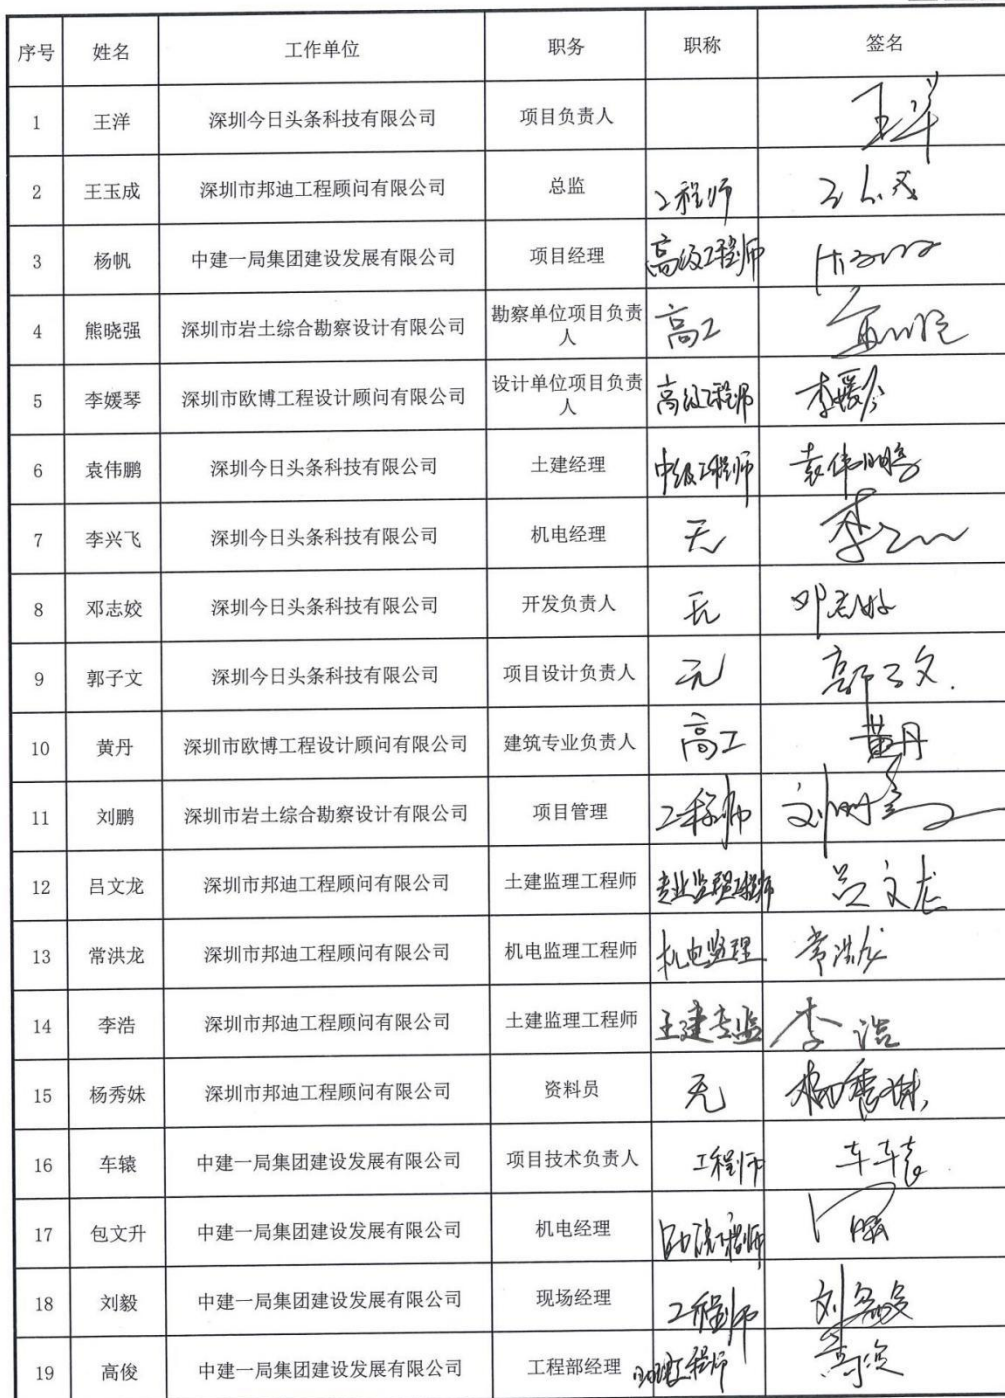 序号 姓名 工作单位 职务 职称 签名
1 王洋 深圳今日头条科技有限公司 项目负责人 王洋
2 王玉成 深圳市邦迪工程顾问有限公司 总监 工程师
3 杨帆 中建一局集团建设发展有限公司 项目经理 高级工程师
4 熊晓强 深圳市岩土综合勘察设计有限公司 勘察单位项目负责人 高工
5 李媛琴 深圳市欧博工程设计顾问有限公司 设计单位项目负责人 高级工程师 李媛琴
6 袁伟鹏 深圳今日头条科技有限公司 土建经理 中级工程师 袁伟鹏
7 李兴飞 深圳今日头条科技有限公司 机电经理 无
8 邓志姣 深圳今日头条科技有限公司 开发负责人 无 邓志姣
9 郭子文 深圳今日头条科技有限公司 项目设计负责人 无 郭子文
10 黄丹 深圳市欧博工程设计顾问有限公司 建筑专业负责人 高工 黄丹
11 刘鹏 深圳市岩土综合勘察设计有限公司 项目管理 工程师 刘鹏
12 吕文龙 深圳市邦迪工程顾问有限公司 土建监理工程师 专业监理工程师 吕文龙
13 常洪龙 深圳市邦迪工程顾问有限公司 机电监理工程师 机电监理 常洪龙
14 李浩 深圳市邦迪工程顾问有限公司 土建监理工程师 土建专监 李浩
15 杨秀妹 深圳市邦迪工程顾问有限公司 资料员 无 杨秀妹
16 车辕 中建一局集团建设发展有限公司 项目技术负责人 工程师 车辕
17 包文升 中建一局集团建设发展有限公司 机电经理 助理工程师
18 刘毅 中建一局集团建设发展有限公司 现场经理 工程师 刘毅
19 高俊 中建一局集团建设发展有限公司 工程部经理 助理工程师 高俊